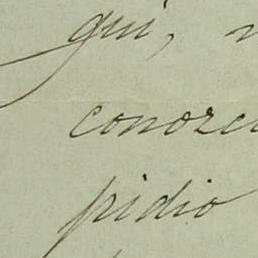 qui,
conozc
pidio